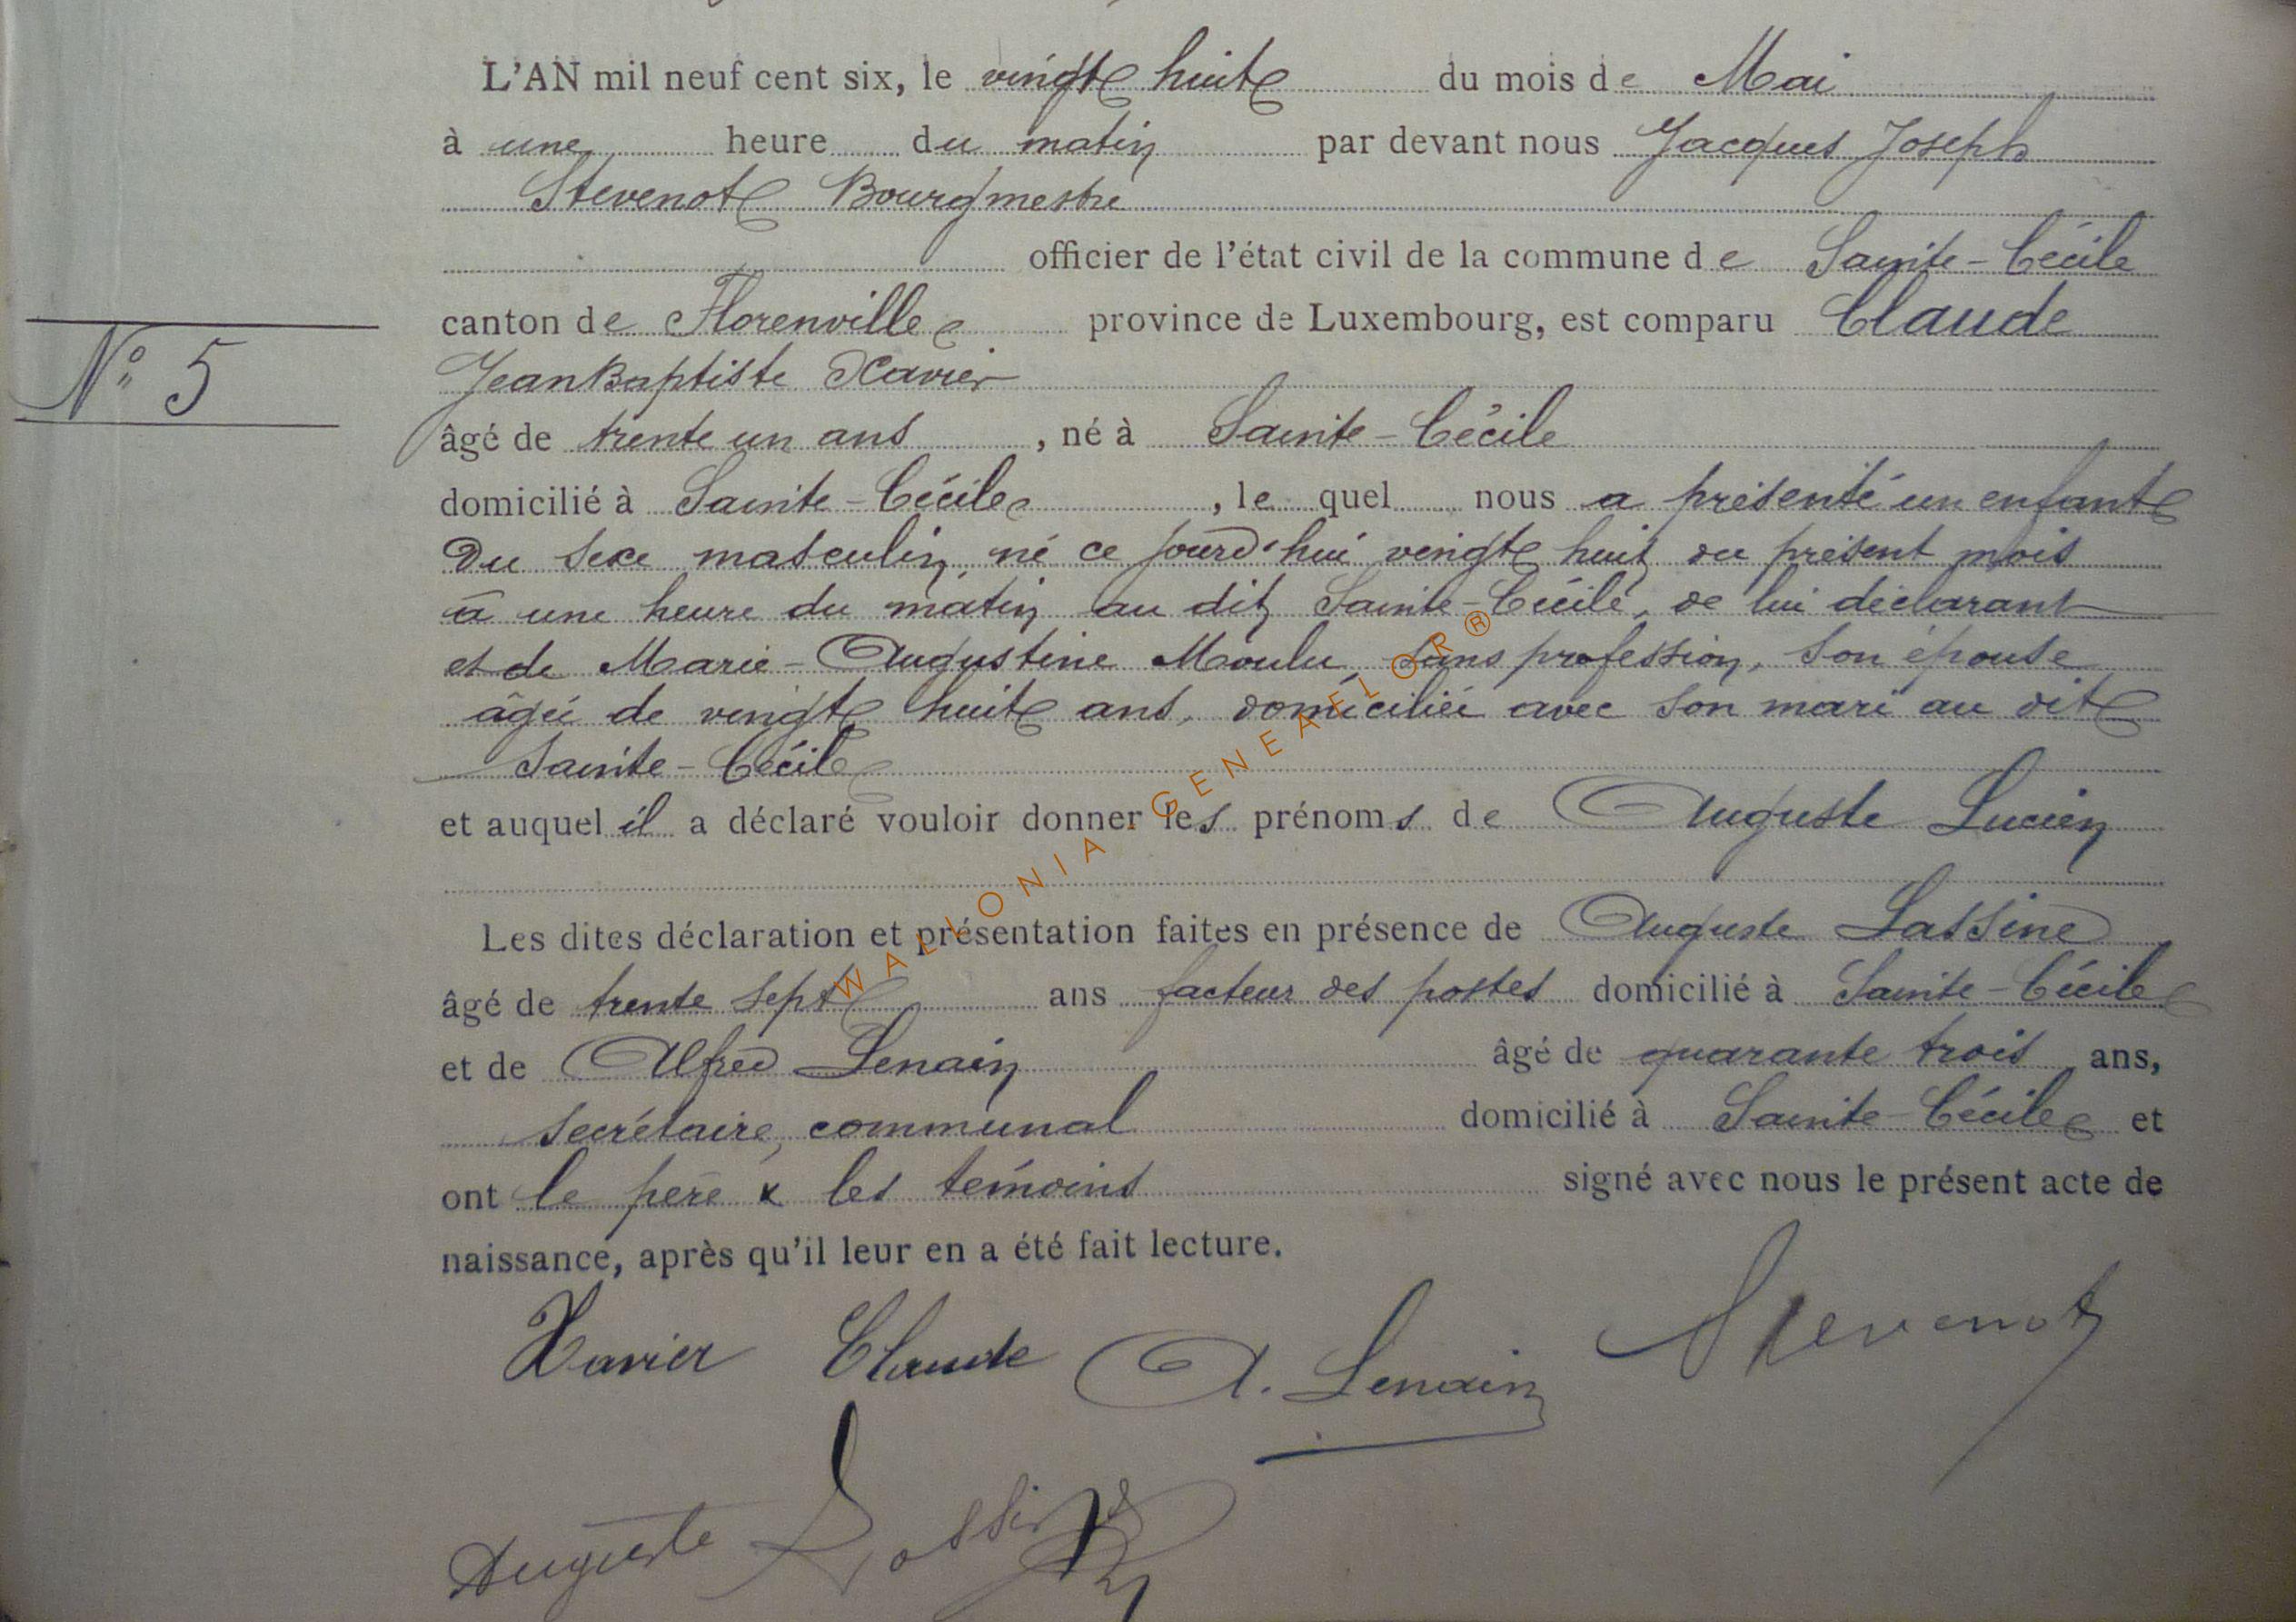 L'AN mil neuf cent six, le vingt huit du mois de Mai
à une heure du matin par devant nous Jacques Joseph
Stevenot Bourgmestre
officier de l'état civil de la commune de Sainte-Cécile
canton de Florenville province de Luxembourg, est comparu Claude
N° 5
Jean Baptiste Xavier
âgé de trente un ans, né à Sainte-Cécile
domicilié à Sainte-Cécile, le quel nous a présenté un enfant
Du sexe masculin, né ce jourd'hui vingt huit du présent mois
à une heure du matin au dit Sainte-Cécile, de lui déclarant
et de Marie-Augustine Moulu sans profession, son épouse
âgée de vingt huit ans, domiciliée avec son mari au dit
Sainte-Cécile
et auquel il a déclaré vouloir donner les prénoms de Auguste Lucien
Les dites déclaration et présentation faites en présence de Auguste Lassine
âgé de trente sept ans facteur des postes domicilié à Sainte-Cécile
et de Alfred Lenain âgé de quarante trois ans,
secrétaire communal domicilié à Sainte-Cécile et
ont le père & les témoins signé avec nous le présent acte de
naissance, après qu'il leur en a été fait lecture.
Xavier Claude A. Lenain Stevenot
Auguste Lassine
WALLONIA GENEAFLOR®